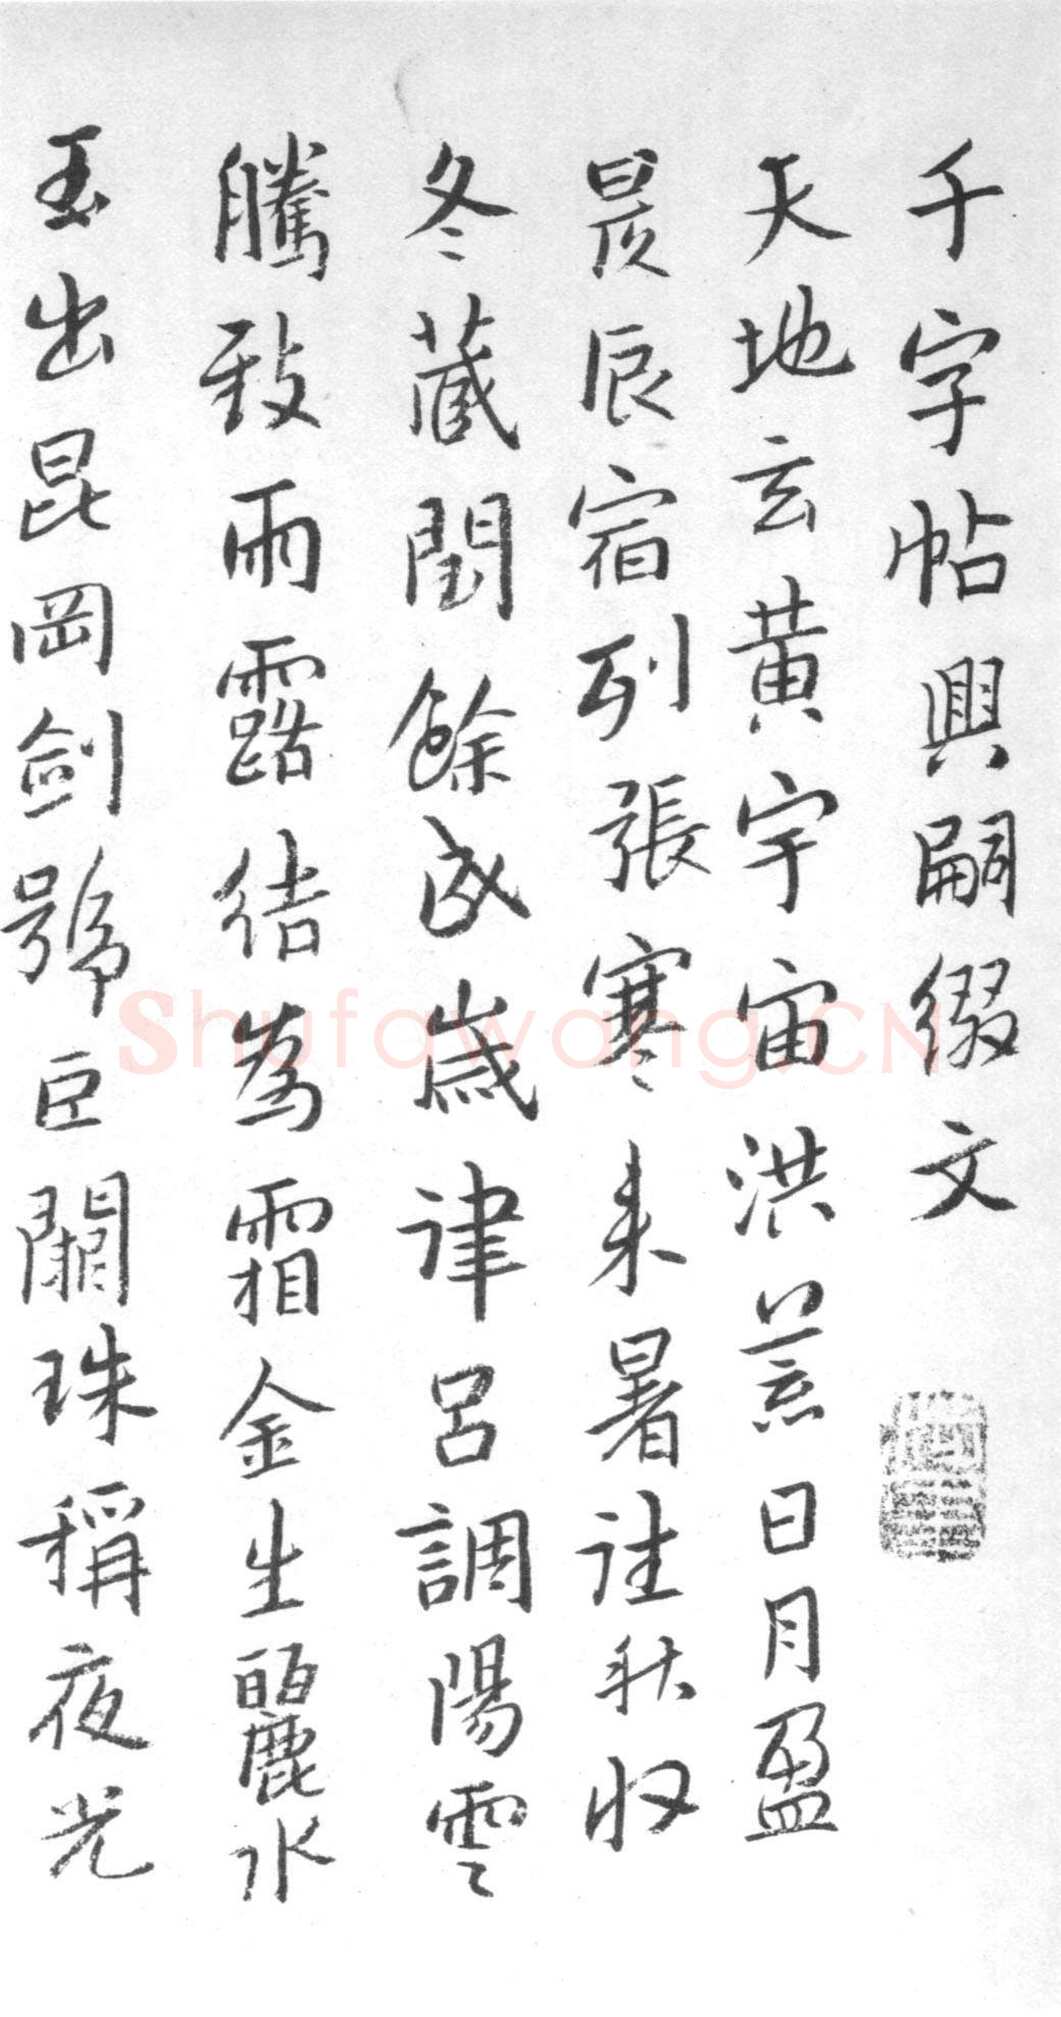 千字帖興嗣綴文
天地玄黃宇宙洪荒日月盈
昃辰宿列張寒来暑往秋収
冬蔵閏餘成歲律呂調陽雲
騰致雨露結為霜金生麗水
玉出昆岡劍號巨闕珠稱夜光
Shufawang.CN